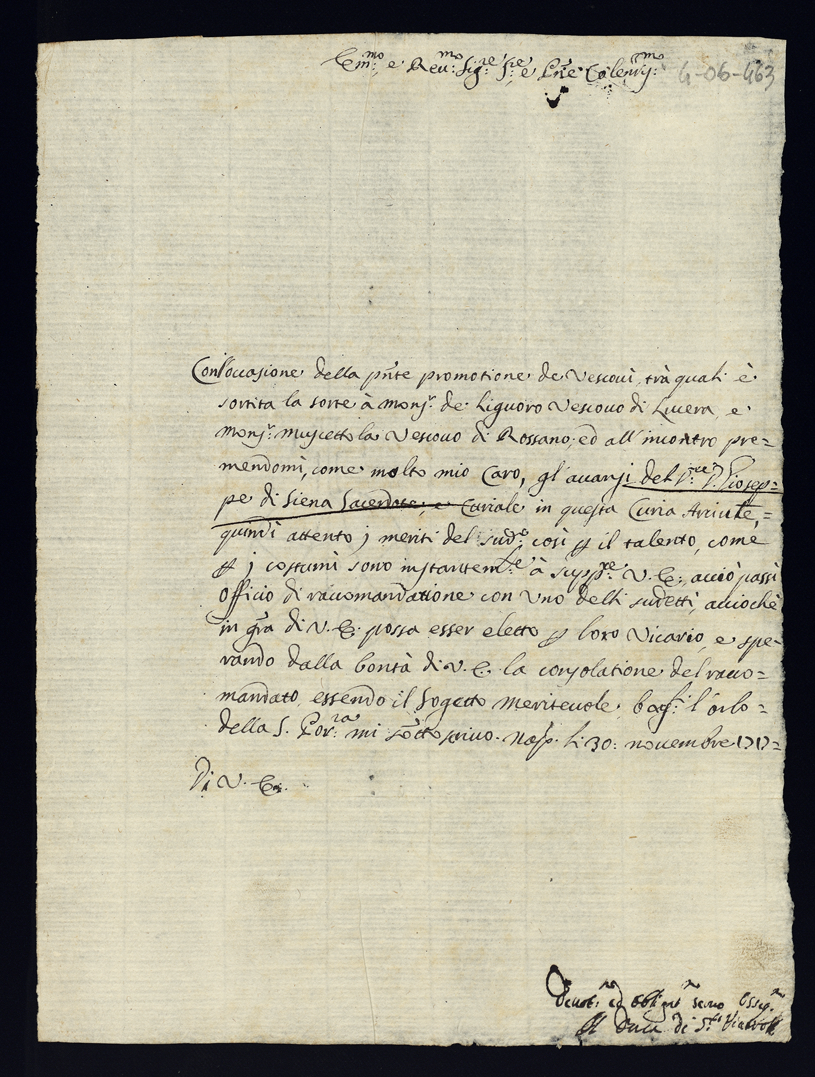 Em:mo e Reu:mo Sig:re S:re e Pñe Colen:mo
4-06-463
Coll'occasione della pñte promotione de Vescoui, trà quali è
sortita la sorte à monsr. de Liguoro Vescouo di Lucera, e
monsr. Muscettola Vescouo di Rossano; ed all'incontro pre=
mendomi, come molto mio Caro, gl'auanzi del S:re D. Giosep=
pe di Siena Sacerdote, e Curiale in questa Curia Arciule,=
quindi attento i meriti del sud:o così p il talento, come
p i costumi sono instantem:te à supp:re V. E:, acciò passi
officio di raccomandatione con Uno delli sudetti, acciochè
in gra di V. E. possa esser eletto p loro Vicario, e spe=
rando dalla bontà di V. E. la consolatione del racco=
mandato, essendo il Sogetto meriteuole, bacio l'orlo=
della S. Por:ra mi sotto scriuo. Nap. li 30: nouembre 1717=
Di V. E.
Deuot:mo ed obligat:mo seruo Osseq:mo
Il Duca di S:to